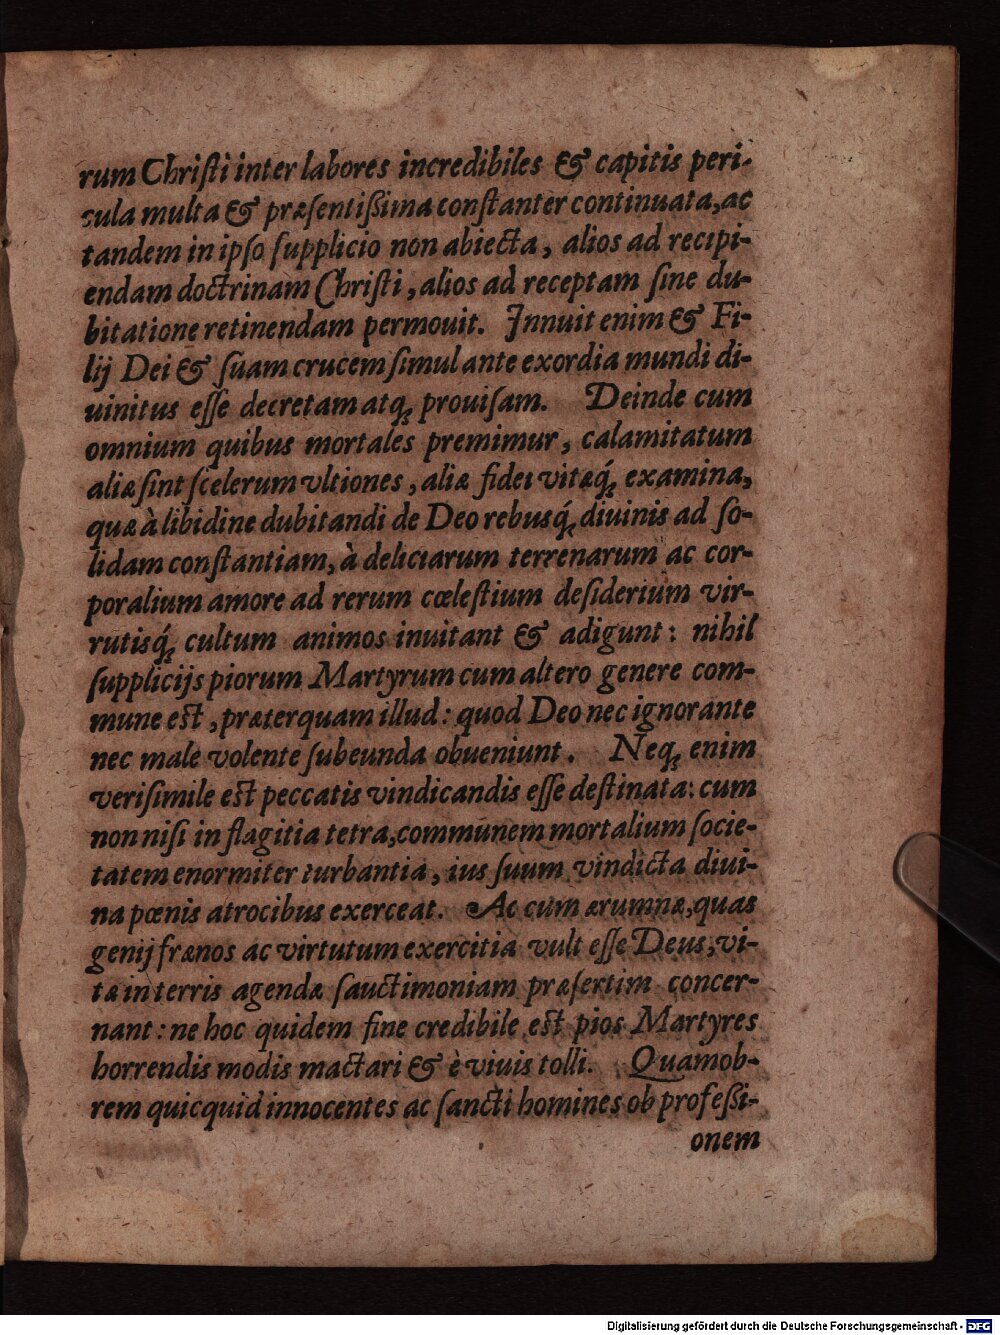 rum Christi inter labores incredibiles & capitis peri-
cula multa & præsentißima constanter continuata, ac
tandem in ipso supplicio non abiecta, alios ad recipi-
endam doctrinam Christi, alios ad receptam sine du-
bitatione retinendam permouit. Innuit enim & Fi-
lij Dei & suam crucem simul ante exordia mundi di-
uinitus esse decretam atq; prouisam. Deinde cum
omnium quibus mortales premimur, calamitatum
aliæ sint scelerum vltiones, aliæ fidei vitæq́; examina,
quæ à libidine dubitandi de Deo rebusq́; diuinis ad so-
lidam constantiam, à deliciarum terrenarum ac cor-
poralium amore ad rerum cœlestium desiderium vir-
rutisq́; cultum animos inuitant & adigunt: nihil
supplicijs piorum Martyrum cum altero genere com-
mune est, præterquam illud: quod Deo nec ignorante
nec male volente subeunda obueniunt. Neq; enim
verisimile est peccatis vindicandis esse destinata: cum
non nisi in flagitia tetra, communem mortalium socie-
tatem enormiter turbantia, ius suum vindicta diui-
na pœnis atrocibus exerceat. Ac cum ærumnæ, quas
genij frænos ac virtutum exercitia vult esse Deus, vi-
tæ in terris agendæ sauctimoniam præsertim concer-
nant: ne hoc quidem fine credibile est pios Martyres
horrendis modis mactari & è viuis tolli. Quamob-
rem quicquid innocentes ac sancti homines ob profeßi-
onem
Digitalisierung gefördert durch die Deutsche Forschungsgemeinschaft - DFG